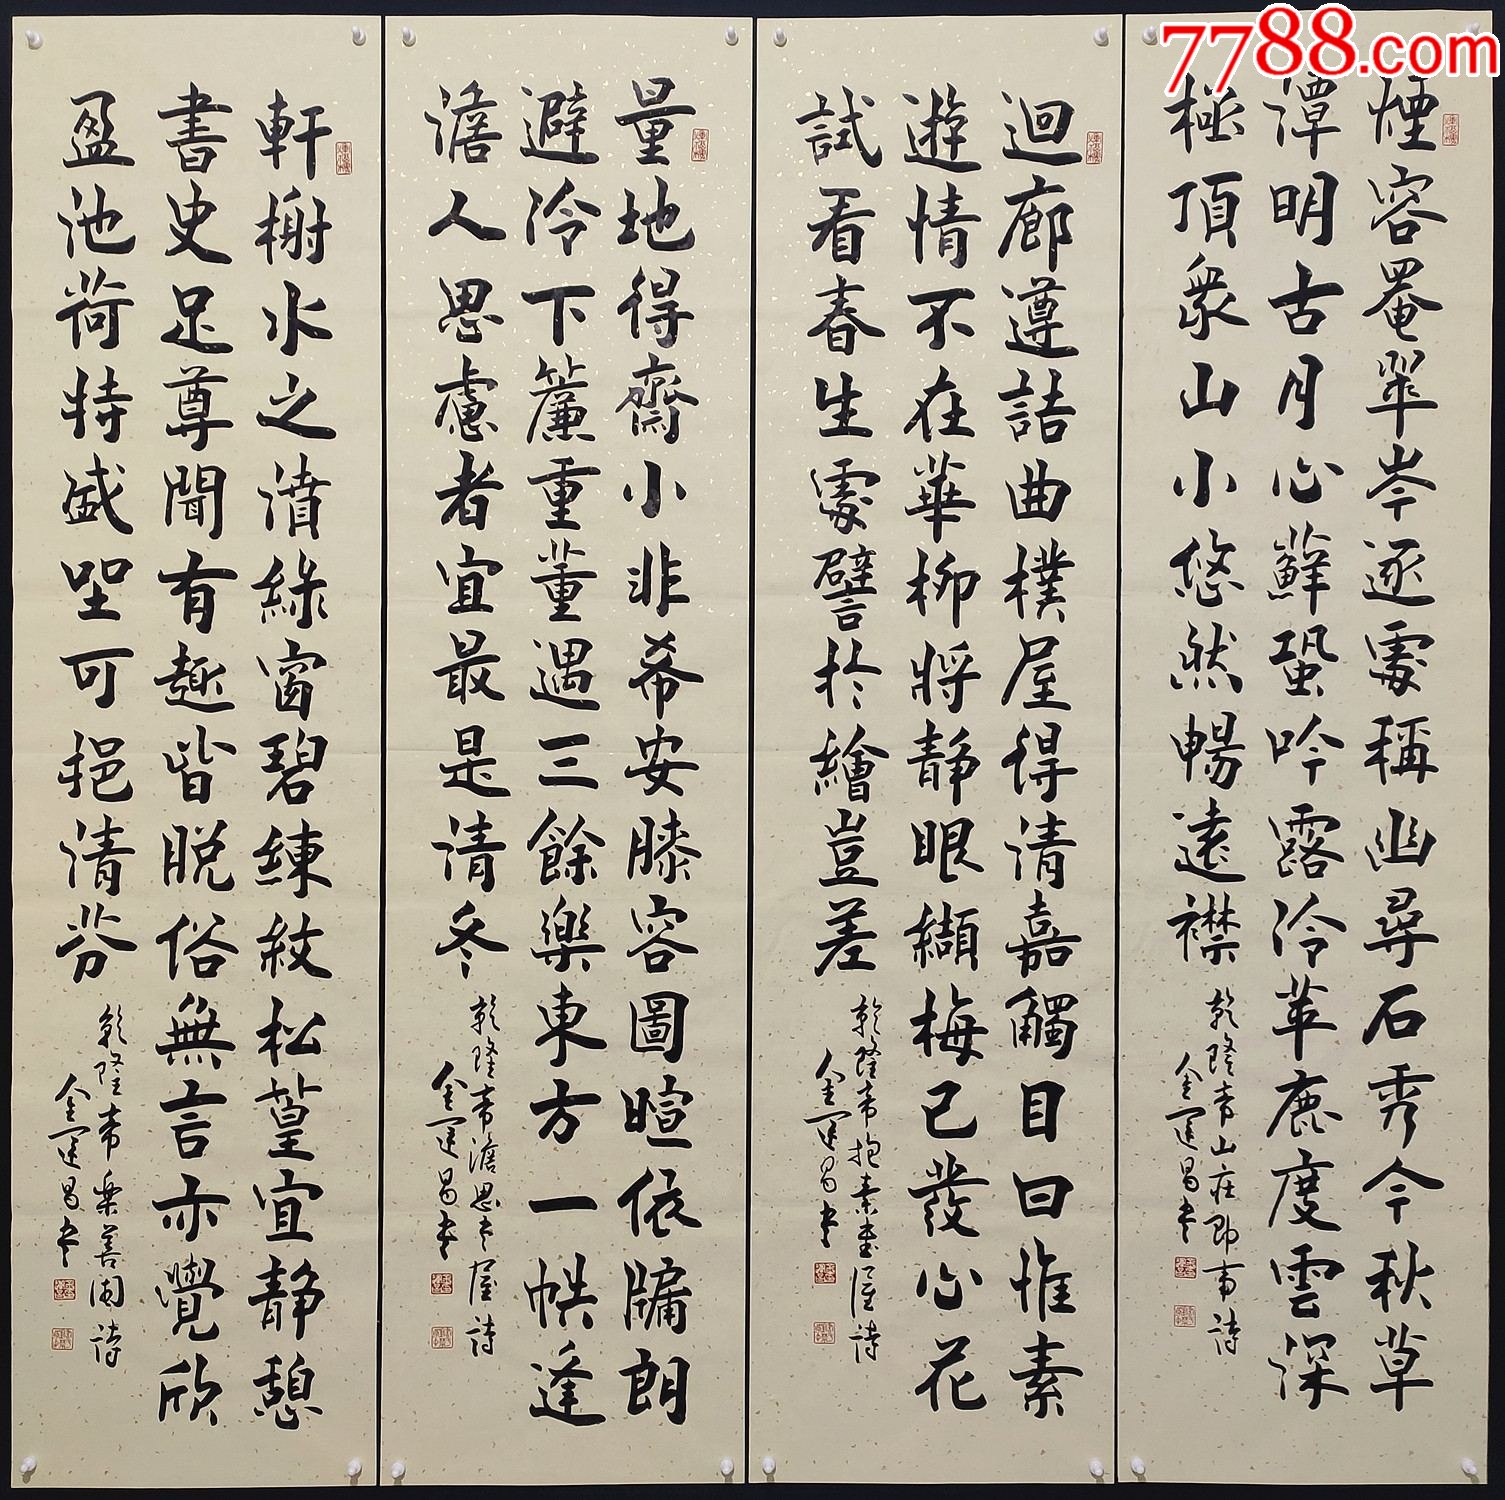 7788.com
煙容罨翠岑逐處稱幽尋石秀今秋草
潭明古月心蘚蛩吟露冷苹鹿度雲深
極頂衆山小悠然暢遠襟
乾隆帝山莊即事詩
金運昌書
迴廊遵詰曲樸屋得清嘉觸目曰惟素
遊情不在華柳將靜眼纈梅已發心花
試看春生處譬於繪豈差
乾隆帝抱素書屋詩
金運昌書
量地得齋小非希安膝容圖暄依牖朗
避冷下簾重董遇三餘樂東方一帙逢
澹人思慮者宜最是清冬
乾隆帝澹思書屋詩
金運昌書
軒榭水之濆綠窗碧練紋松篁宜靜憩
書史足尊聞有趣皆脫俗無言亦覺欣
盈池荷特盛坐可挹清芬
乾隆帝樂善園詩
金運昌書